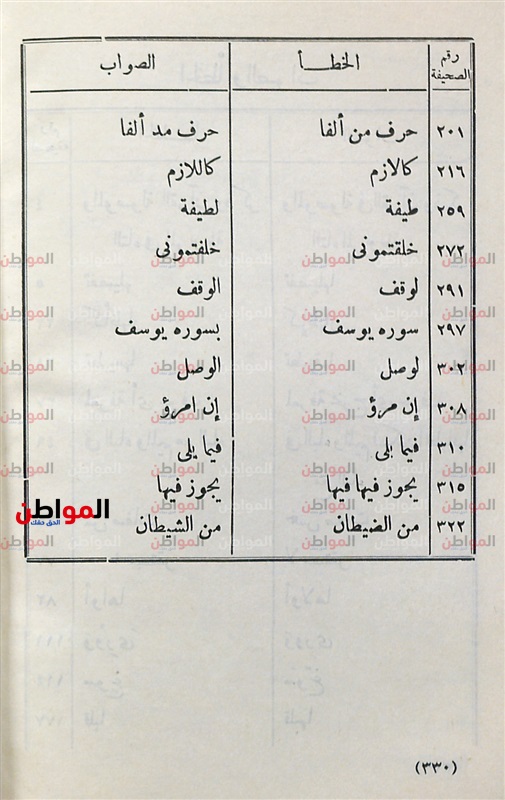 رقم الصحيفة | الخطـأ | الصواب
٢٠١ | حرف من ألفا | حرف مد ألفا
٢١٦ | كالازم | كاللازم
٢٥٩ | طيفة | لطيفة
٢٧٢ | خلقتمونى | خلفتمونى
٢٩١ | لوقف | الوقف
٢٩٧ | سوره يوسف | بسوره يوسف
٣٠٢ | لوصل | الوصل
٣٠٨ | إن مرؤ | إن امرؤ
٣١٠ | فيما بلى | فيما يلى
٣١٥ | يجوز فيها فيها | يجوز فيها
٣٢٢ | من الضيطان | من الشيطان
المواطن
الحق حقك
(٣٣٠)